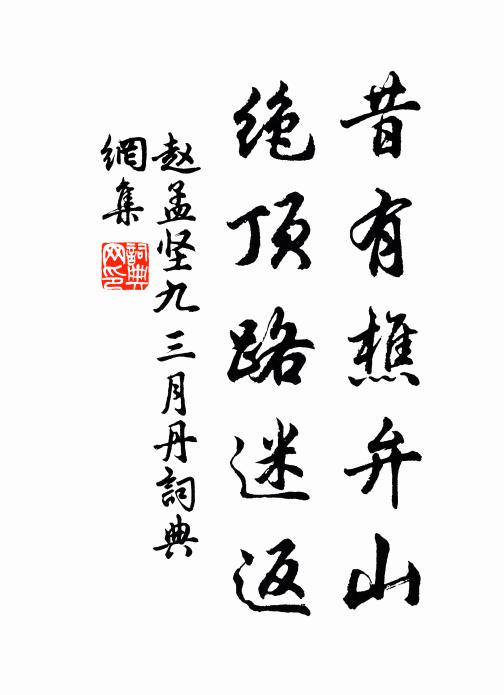 昔有樵弁山
绝顶路迷返
赵孟坚九三月丹詞典
網集
詞典网印